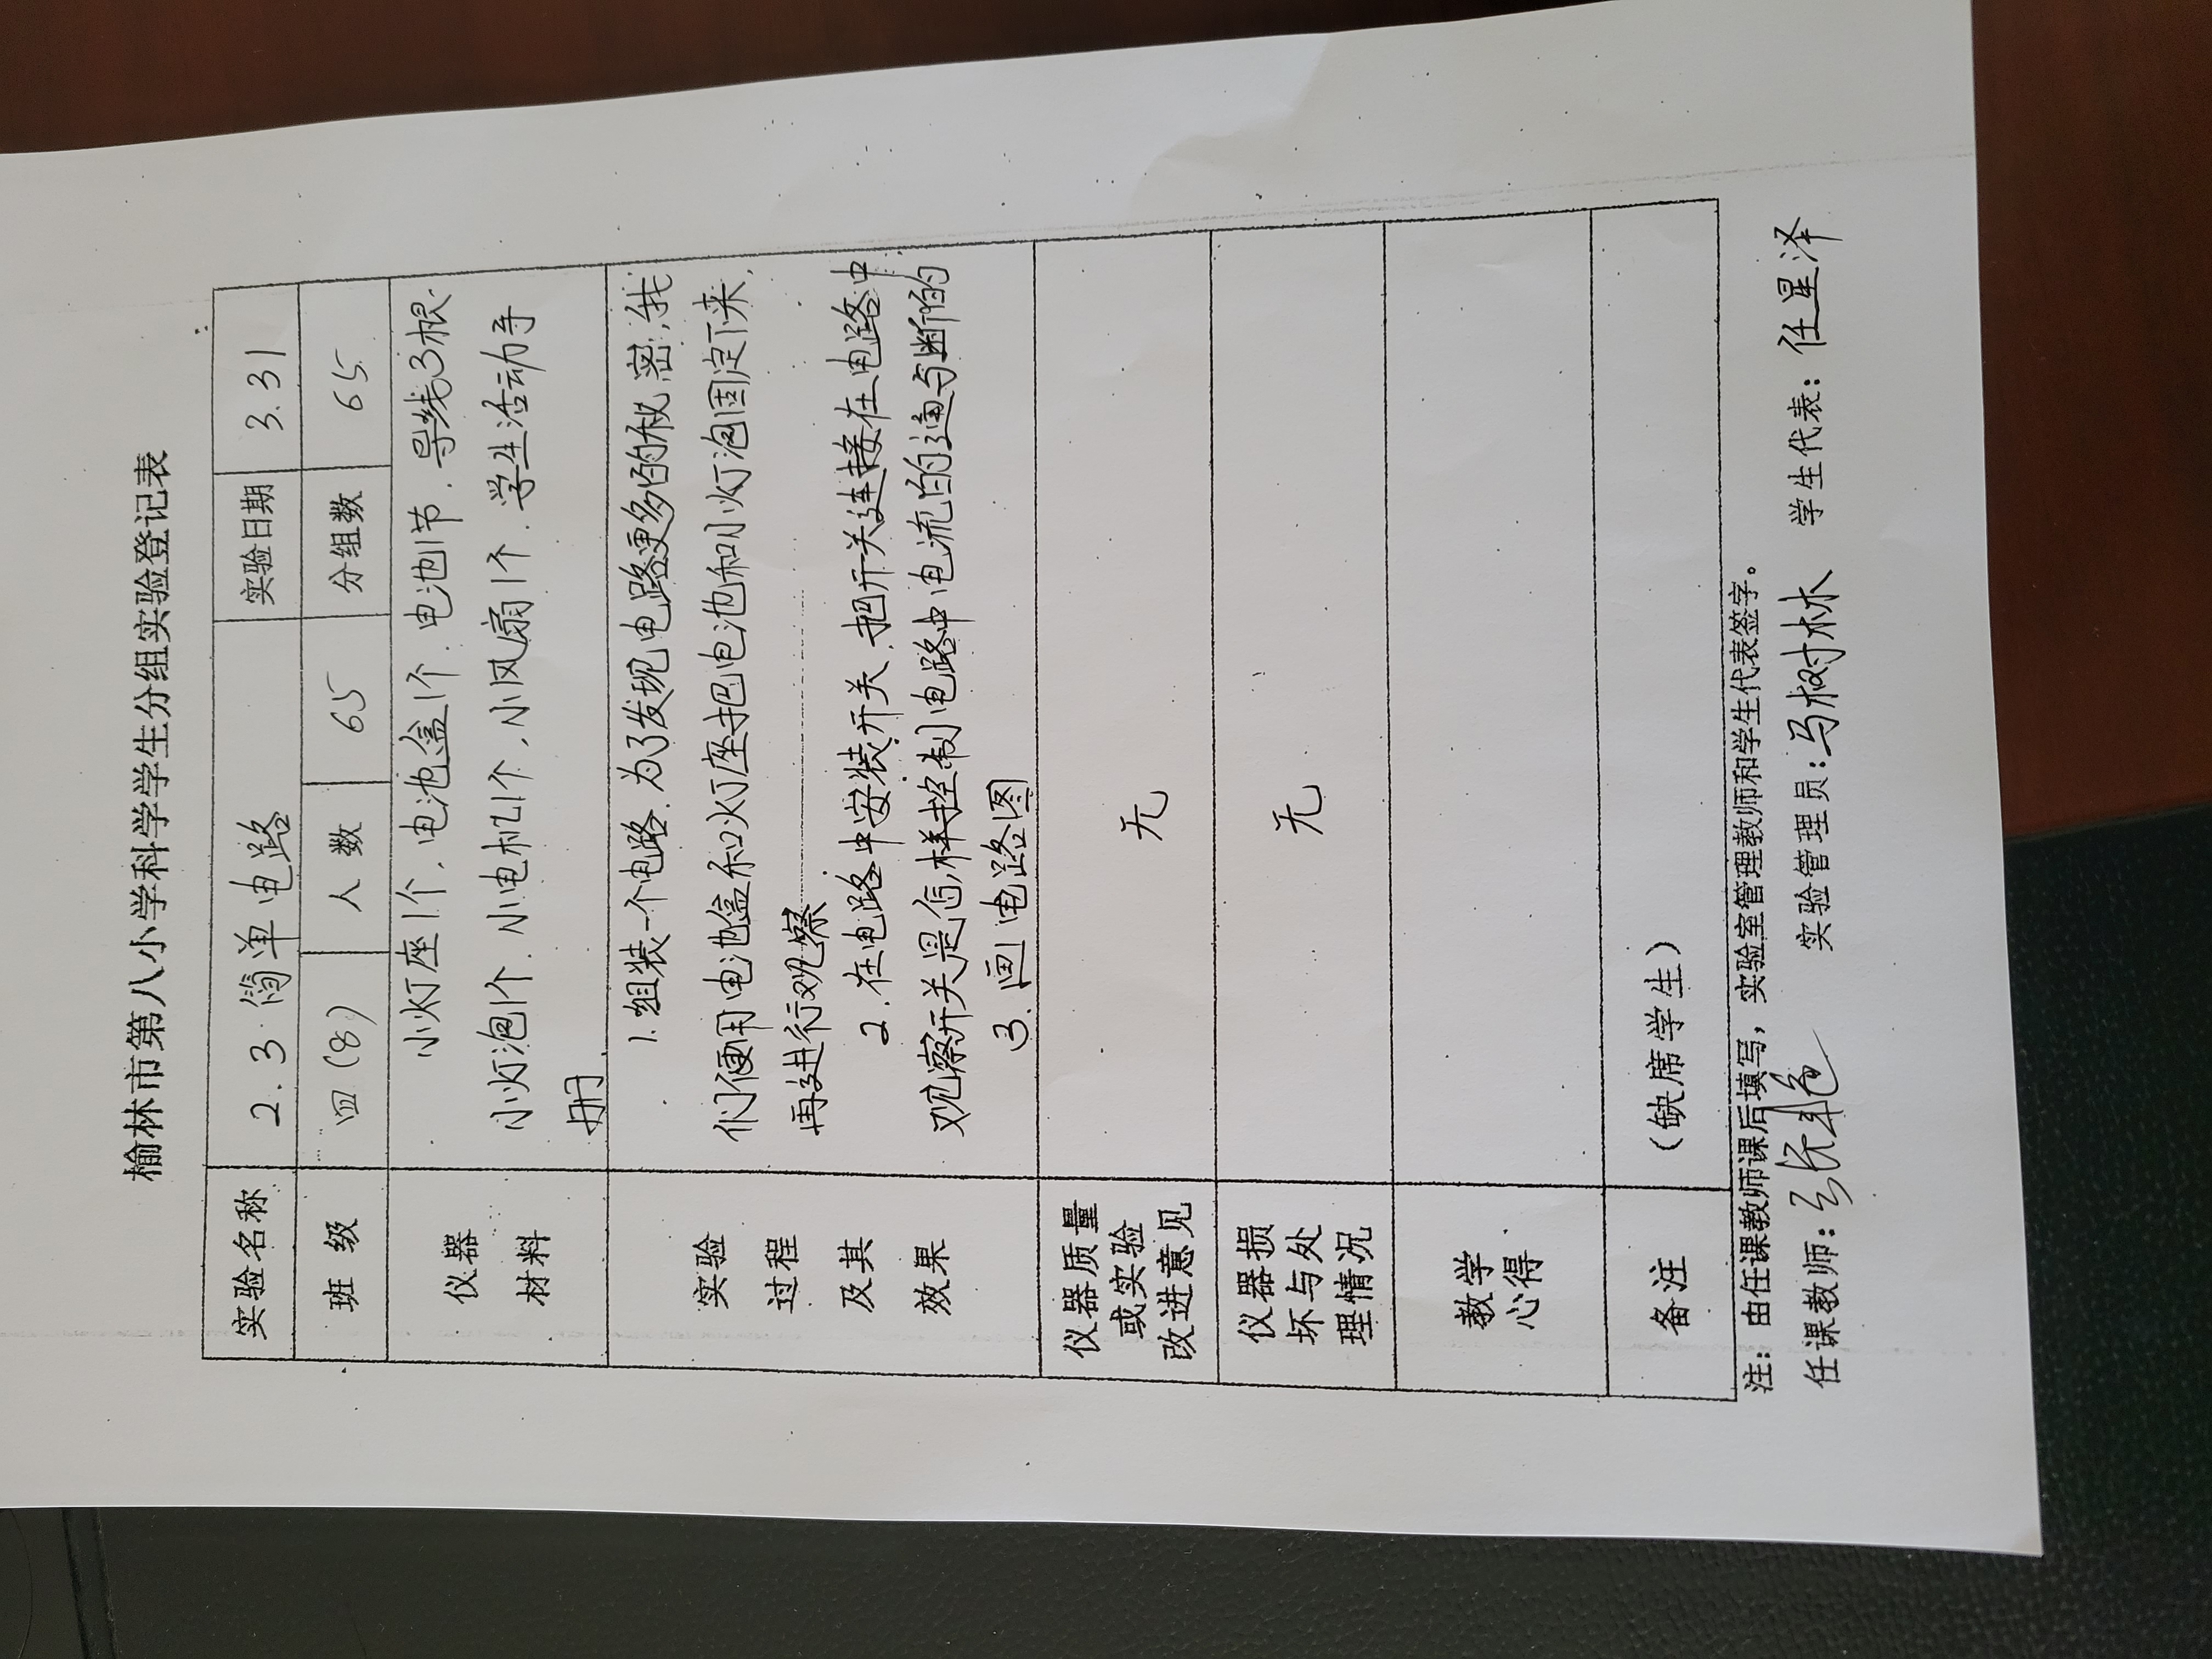 榆林市第八小学科学学生分组实验登记表
实验名称 2.3 简单电路 实验日期 3.31
班 级 四(8) 人 数 65 分组数 65
仪器
材料
小灯座1个、电池盒1个、电池1节、导线3根、
小灯泡1个、小电机1个、小风扇1个、学生活动手
册
实验
过程
及其
效果
1.组装一个电路.为了发现电路更多的秘密,我
们便用电池盒和灯座把电池和小灯泡固定下来,
再进行观察
2.在电路中安装开关,把开关连接在电路中
观察开关是怎样控制电路中电流的通与断的
3.画电路图
仪器质量
或实验
改进意见
无
仪器损
坏与处
理情况
无
教学
心得
备注 (缺席学生)
注：由任课教师课后填写，实验室管理教师和学生代表签字。
任课教师： 实验管理员：马树林 学生代表：任星泽